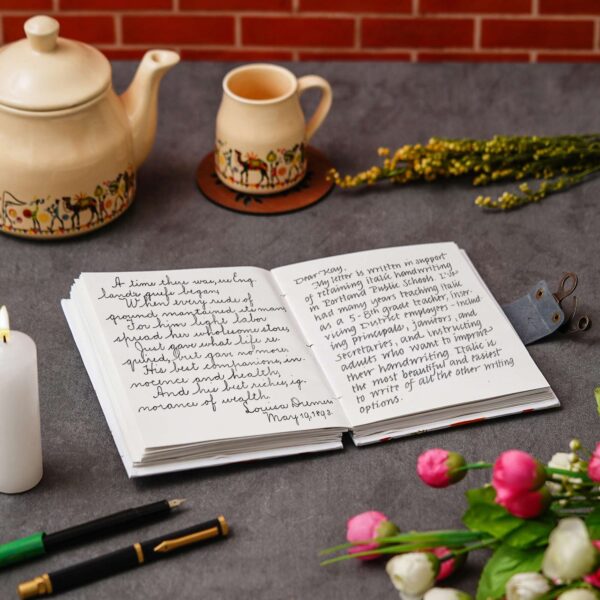 A time there was, ere Eng-
lands griefs began,
When every rude of
ground maintained its man
For him light labor
spread her wholesome store,
Just gave what life re-
quired, but gave no more.
His best companions, in-
nocence and health;
And his best riches, ig-
norance of wealth.
Louisa
May 19, 1892.
Dear Kay,
My letter is written in support
of retaining italic handwriting
in Portland Public Schools. I've
had many years teaching italic
as a 5-8th grade teacher, inser-
vicing District employers - includ-
ing principals, janitors, and
secretaries, and instructing
adults who want to improve
their handwriting. Italic is
the most beautiful and easiest
to write of all the other writing
options.